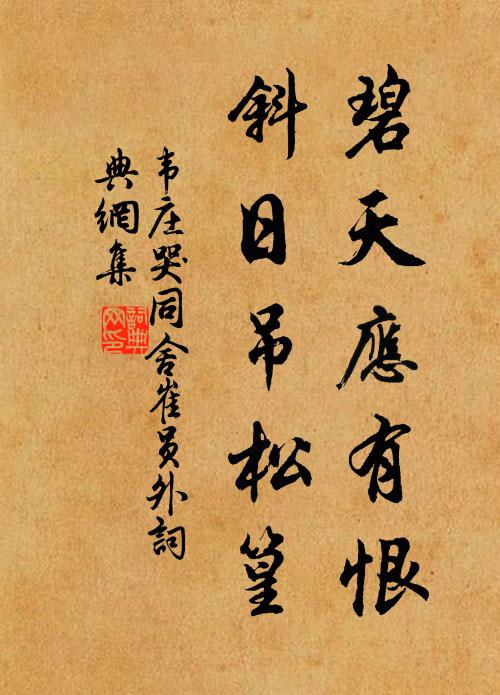 碧天應有恨
斜日吊松篁
韦庄哭同舍崔员外詞
典網集
詞典
网印